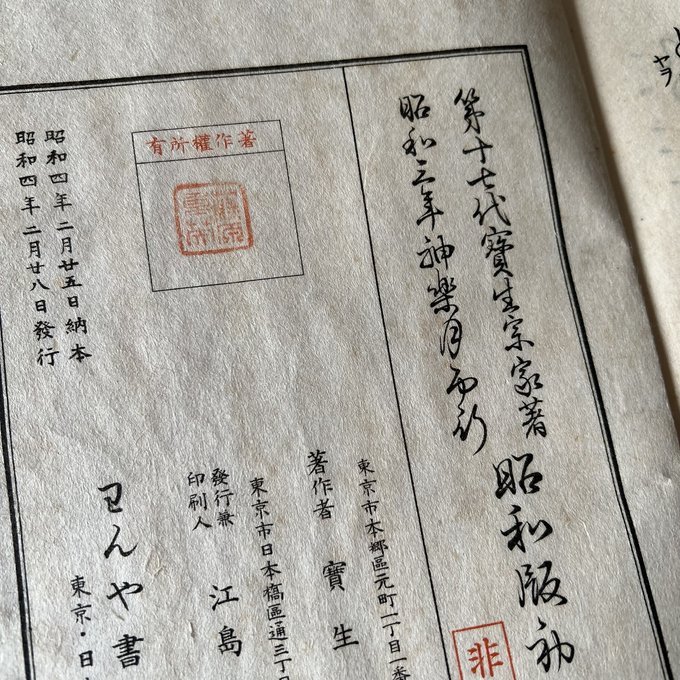 第十七代寶生宗家著
昭和三年神樂月而新
昭和版初
非
東京市本郷區元町一丁目一番
著作者 寶生
東京市日本橋區通三丁
發行兼
印刷人
江島
わんや書
東京・日
著作權所有
昭和四年二月廿五日納本
昭和四年二月廿八日發行
ヤヲ